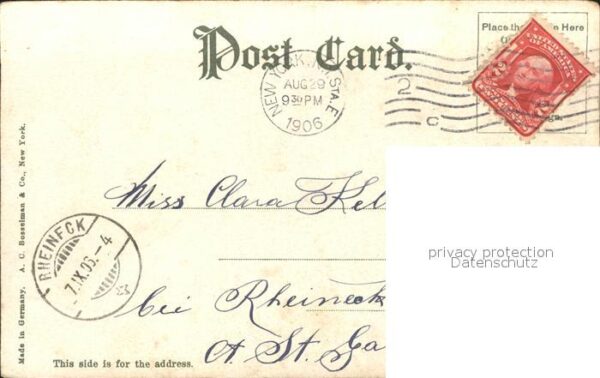 Place the
Here
Post Card.
NEW YORK, N.Y. STA. E
AUG 29
9 30 PM
1906
2
C
UNITED STATES
OF AMERICA
Miss Clara
RHEINECK
7.IX.06.-4
bei Rheineck
St. Ga
privacy protection
Datenschutz
Made in Germany. A. C. Bosselman & Co., New York.
This side is for the address.